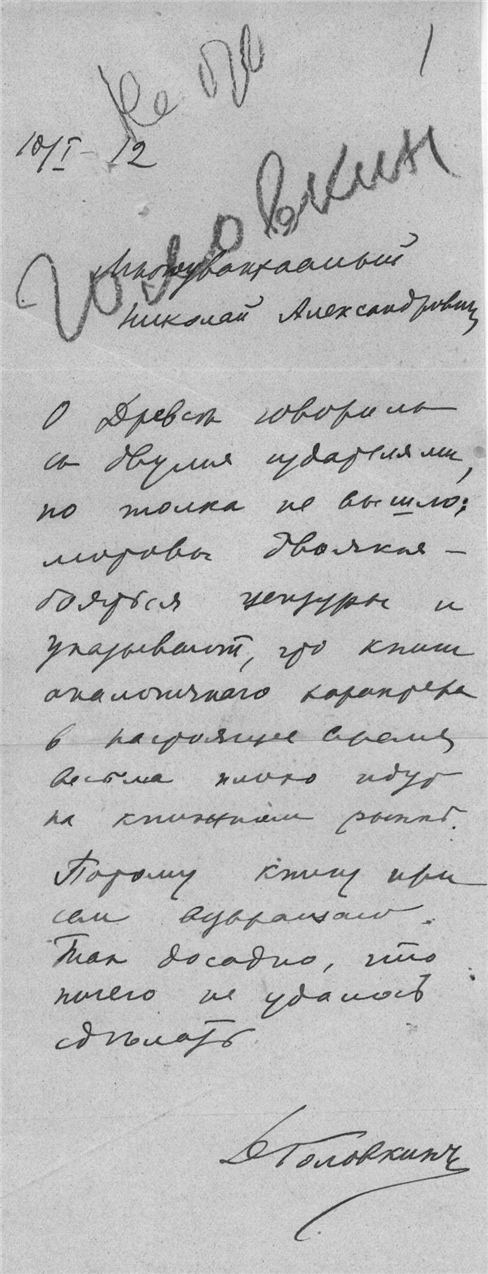 Не бро
/
10/I – 12
Головкин
Многоуважаемый
Николай Александрович,
О Древсе говорилъ
съ двумя издателями,
но толка не вышло:
мотивы двоякие –
бояться цензуры и
указывают, что книги
аналогичного характера
в настоящее время
весьма плохо идут
на книжном рынкѣ.
Потому книгу при
сем возвращаю.
Так досадно, что
ничего не удалось
сдѣлать
Головкинъ